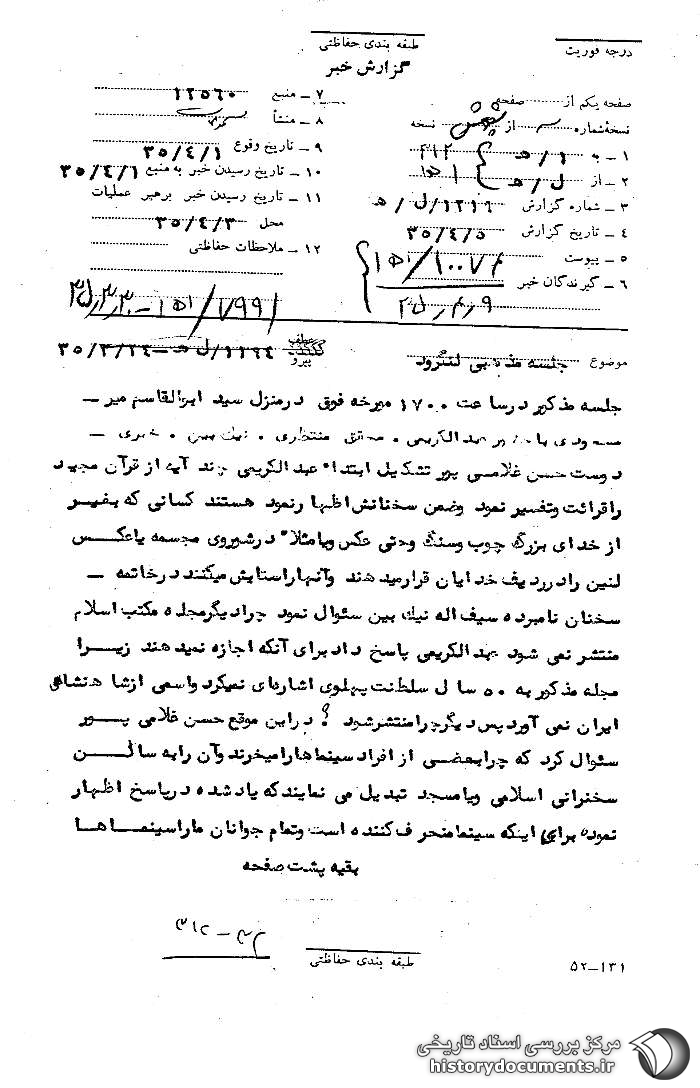 طبقه بندی حفاظتی
درجه فوریت
گزارش خبر
صفحه یکم از صفحه
نسخه شماره از نسخه
۱ ـ به ۳۱۲
۲ ـ از
۳ ـ شماره گزارش ۱۲۱۶/ل/ ه
۴ ـ تاریخ گزارش ۳۵/۴/۵
۵ ـ پیوست
۶ ـ گیرندگان خبر
۷ ـ منبع ۱۲۵۶۰
۸ ـ منشأ
۹ ـ تاریخ وقوع ۳۵/۴/۱
۱۰ ـ تاریخ رسیدن خبر به منبع ۳۵/۴/۱
۱۱ ـ تاریخ رسیدن خبر برهبر عملیات
محل ۳۵/۴/۳
۱۲ ـ ملاحظات حفاظتی
موضوع جلسه مذهبی لنگرود
عطف
پیرو ۱۱۶۴/ل ه ـ ۳۵/۳/۲۴
جلسه مذکور درساعت ۱۷۰۰ مورخه فوق درمنزل سید ابوالقاسم میر ـ
عبدالکریمی ، منتظری ، نیک بین ، خبری ـ
دوست حسن غلامی پور تشکیل ابتداء عبدالکریمی چند آیه از قرآن مجید
را قرائت وتفسیر نمود وضمن سخنانش اظهارنمود هستند کسانی که بغیر
از خدای بزرگ چوب وسنگ وحتی عکس ویا مثلاً درشوروی مجسمه یاعکس
لنین رادرردیف خدایان قرارمیدهند وآنهاراستایش میکنند درخاتمه ـ
سخنان نامبرده سیف اله نیک بین سئوال نمود چرادیگرمجله مکتب اسلام
منتشر نمی شود عبدالکریمی پاسخ داد برای آنکه اجازه نمیدهند زیرا
مجله مذکور به ۵۰ سال سلطنت پهلوی اشاره‌ای نمیکرد واسمی ازشاهنشاهی
ایران نمی آورد پس دیگرچرا منتشرشود ؟ دراین موقع حسن غلامی پور
سئوال کرد که چرابعضی از افراد سینماهارامیخرند وآن رابه سالن
سخنرانی اسلامی ویامسجد تبدیل می نمایندکه یادشده درپاسخ اظهار
نموده برای اینکه سینما منحرف کننده است وتمام جوانان ماراسینماها
بقیه پشت صفحه
طبقه بندی حفاظتی
۵۲ـ۱۳۱
مرکز بررسی اسناد تاریخی
historydocuments.ir